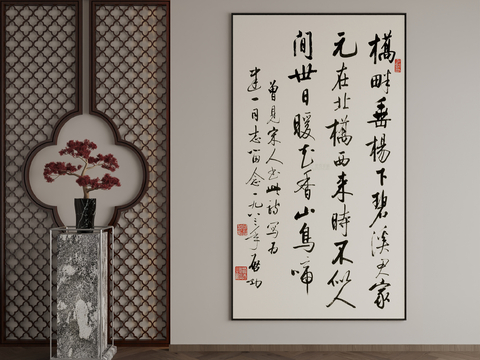 橋畔垂楊下碧溪君家
元在北橋西来時不似人
間世日暖花香山鳥啼
曾見宋人书此詩寫为
建一同志留念一九八三年启功